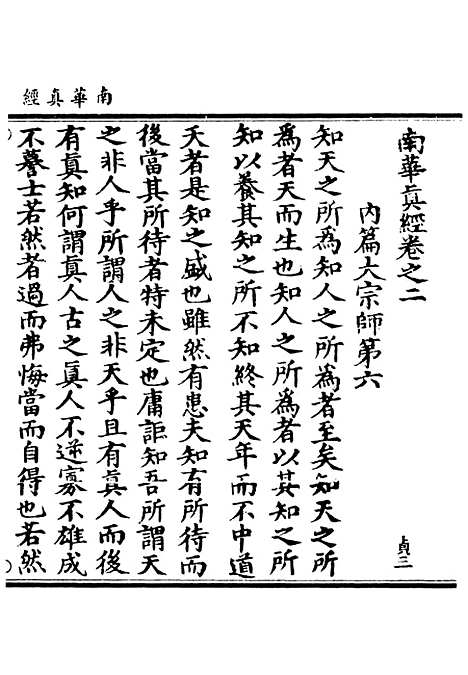 南華真經
南華真經卷之二
貞三
内篇大宗師第六
知天之所為知人之所為者至矣知天之所
為者天而生也知人之所為者以其知之所
知以養其知之所不知終其天年而不中道
夭者是知之盛也雖然有患夫知有所待而
後當其所待者特未定也庸詎知吾所謂天
之非人乎所謂人之非天乎且有真人而後
有真知何謂真人古之真人不逆寡不雄成
不謩士若然者過而弗悔當而自得也若然